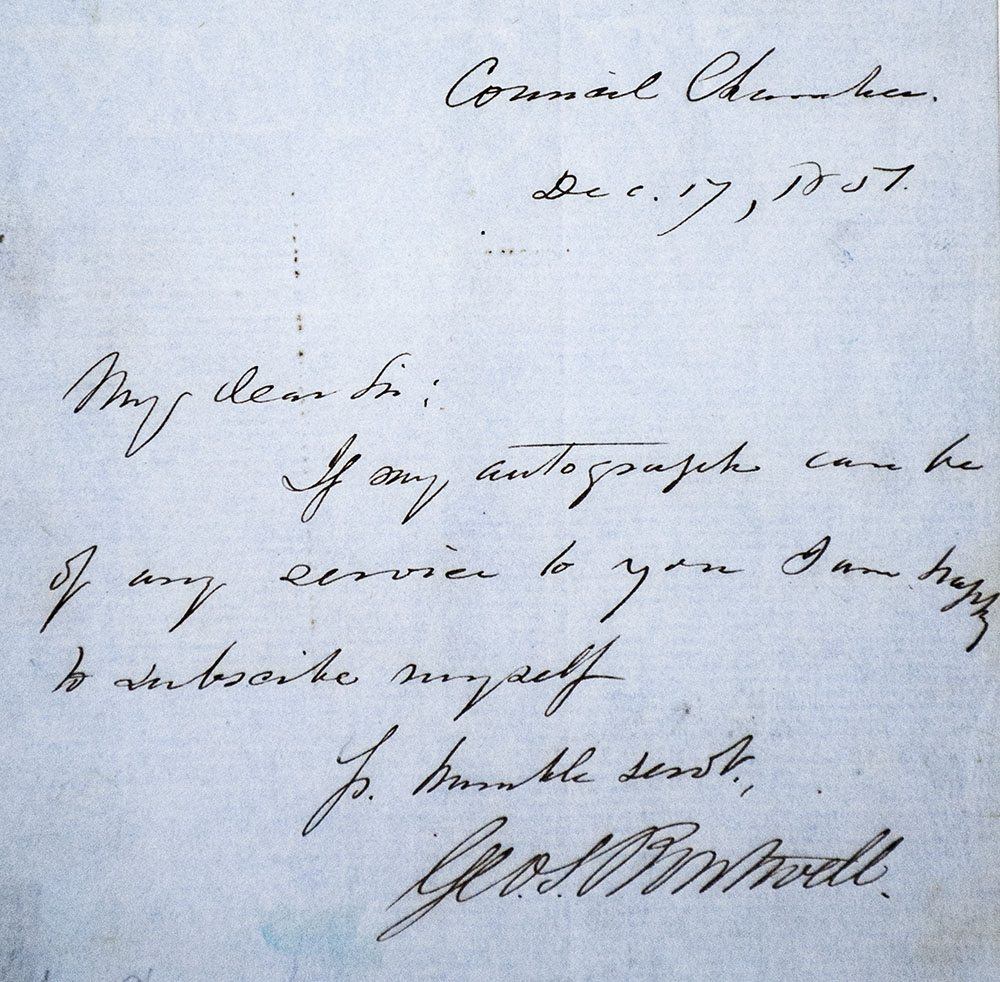 Council Chamber.
Dec. 17, 1851.
My dear Sir:
If my autograph can be
of any service to you I am happy
to subscribe myself
Yr. humble servt.,
Geo. S. Boutwell.